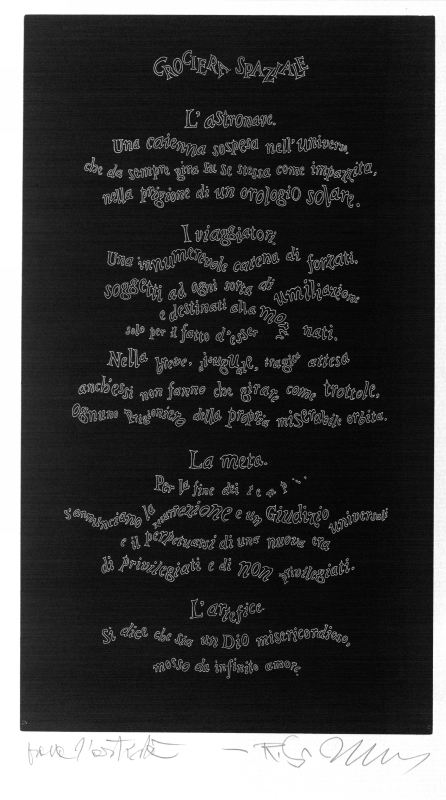 CROCIERA SPAZIALE
L'astronave.
Una catenna sospesa nell'universo,
che da sempre gira su se stessa come impazzita,
nella prigione di un orologio solare.
I viaggiatori
Una innumerevole catena di forzati,
soggetti ad ogni sorta di umiliazione
e destinati alla morte
solo per il fatto d'esser nati.
Nella breve, lugubre, tragica attesa
anch'essi non fanno che girare come trottole,
ognuno prigioniero della propria miserabile orbita.
La meta.
Per la fine dei tempi...
s'annunciano la resurrezione e un Giudizio universale
e il perpetuarsi di una nuova era
di privilegiati e di non privilegiati.
L'artefice.
Si dice che sia un Dio misericordioso,
mosso da infinito amore.